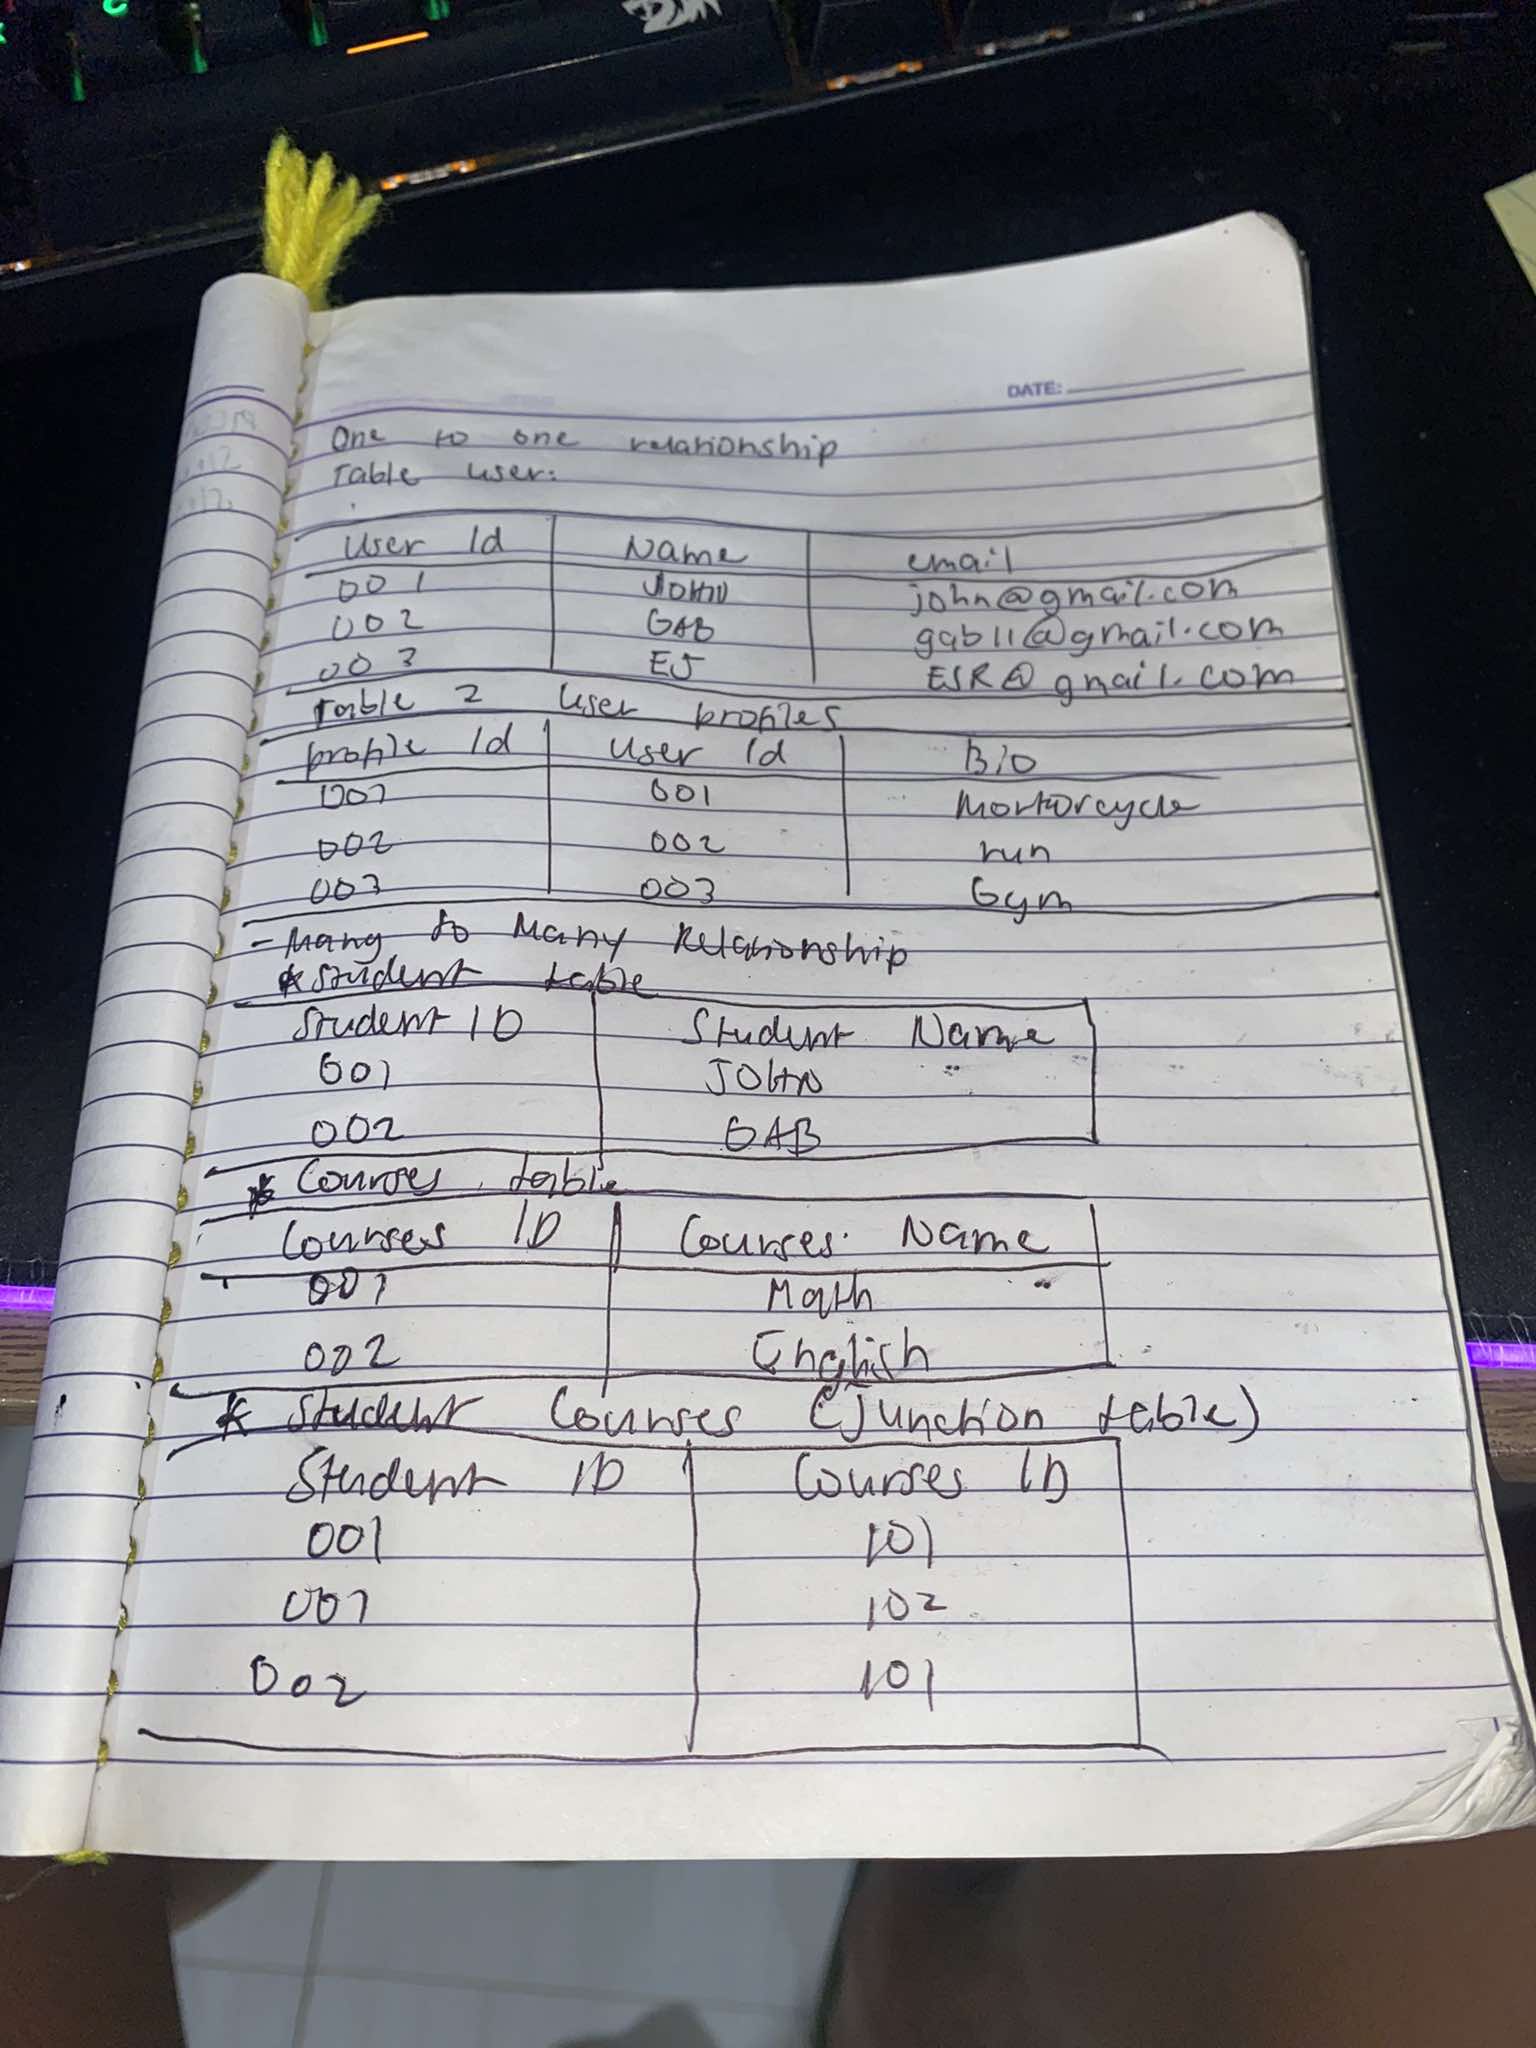 DATE:
One to one relationship
Table user:
User Id Name email
001 JOHN john@gmail.com
002 GAB gab11@gmail.com
003 EJ ESR@gmail.com
Table 2 user profiles
profile Id User Id Bio
001 001 Mortorcycle
002 002 run
003 003 Gym
- Many to Many Relationship
* Student table
Student ID Student Name
001 JOHN
002 GAB
* Courses table
Courses ID Courses Name
001 Math
002 English
* Student Courses (Junction table)
Student ID Courses ID
001 101
001 102
002 101